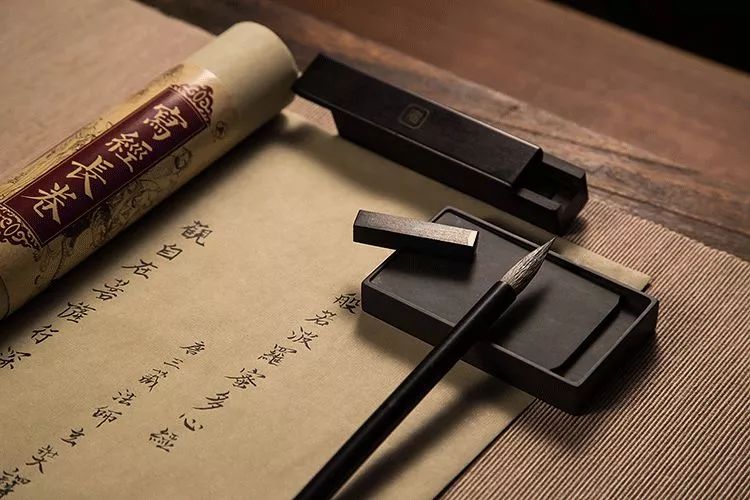 寫經長卷
般若波羅蜜多心經
唐三藏法師玄奘譯
觀自在菩薩行深